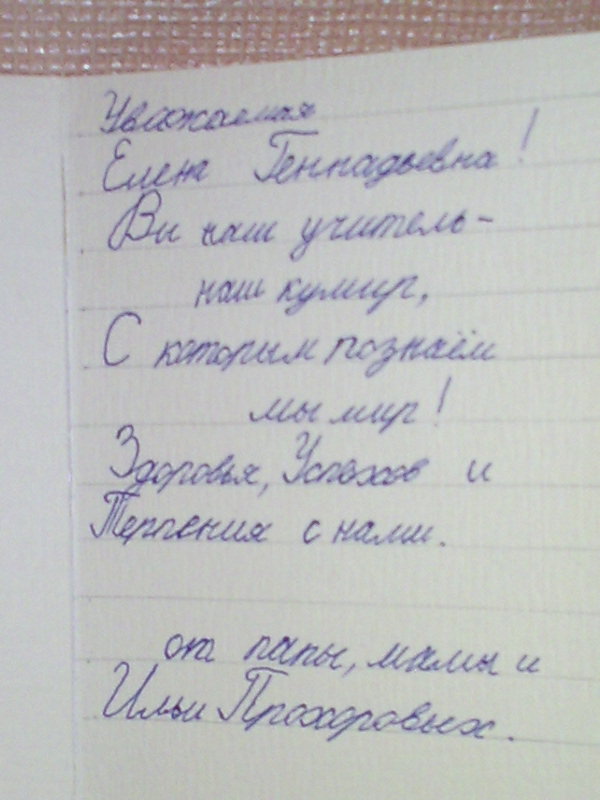 Уважаемая
Елена Геннадьевна!
Вы наш учитель-
наш кумир,
С которым познаём
мы мир!
Здоровья, Успехов и
Терпения с нами.
от папы, мамы и
Ильи Прохоровых.